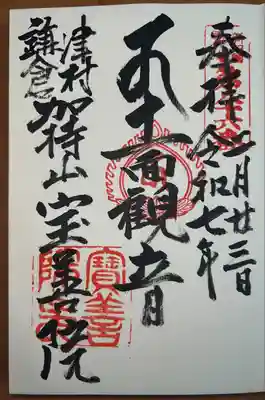 奉拝
令和七年
二月廿三日
十一面觀音
鎌倉
津村
加持山宝善院
寶善